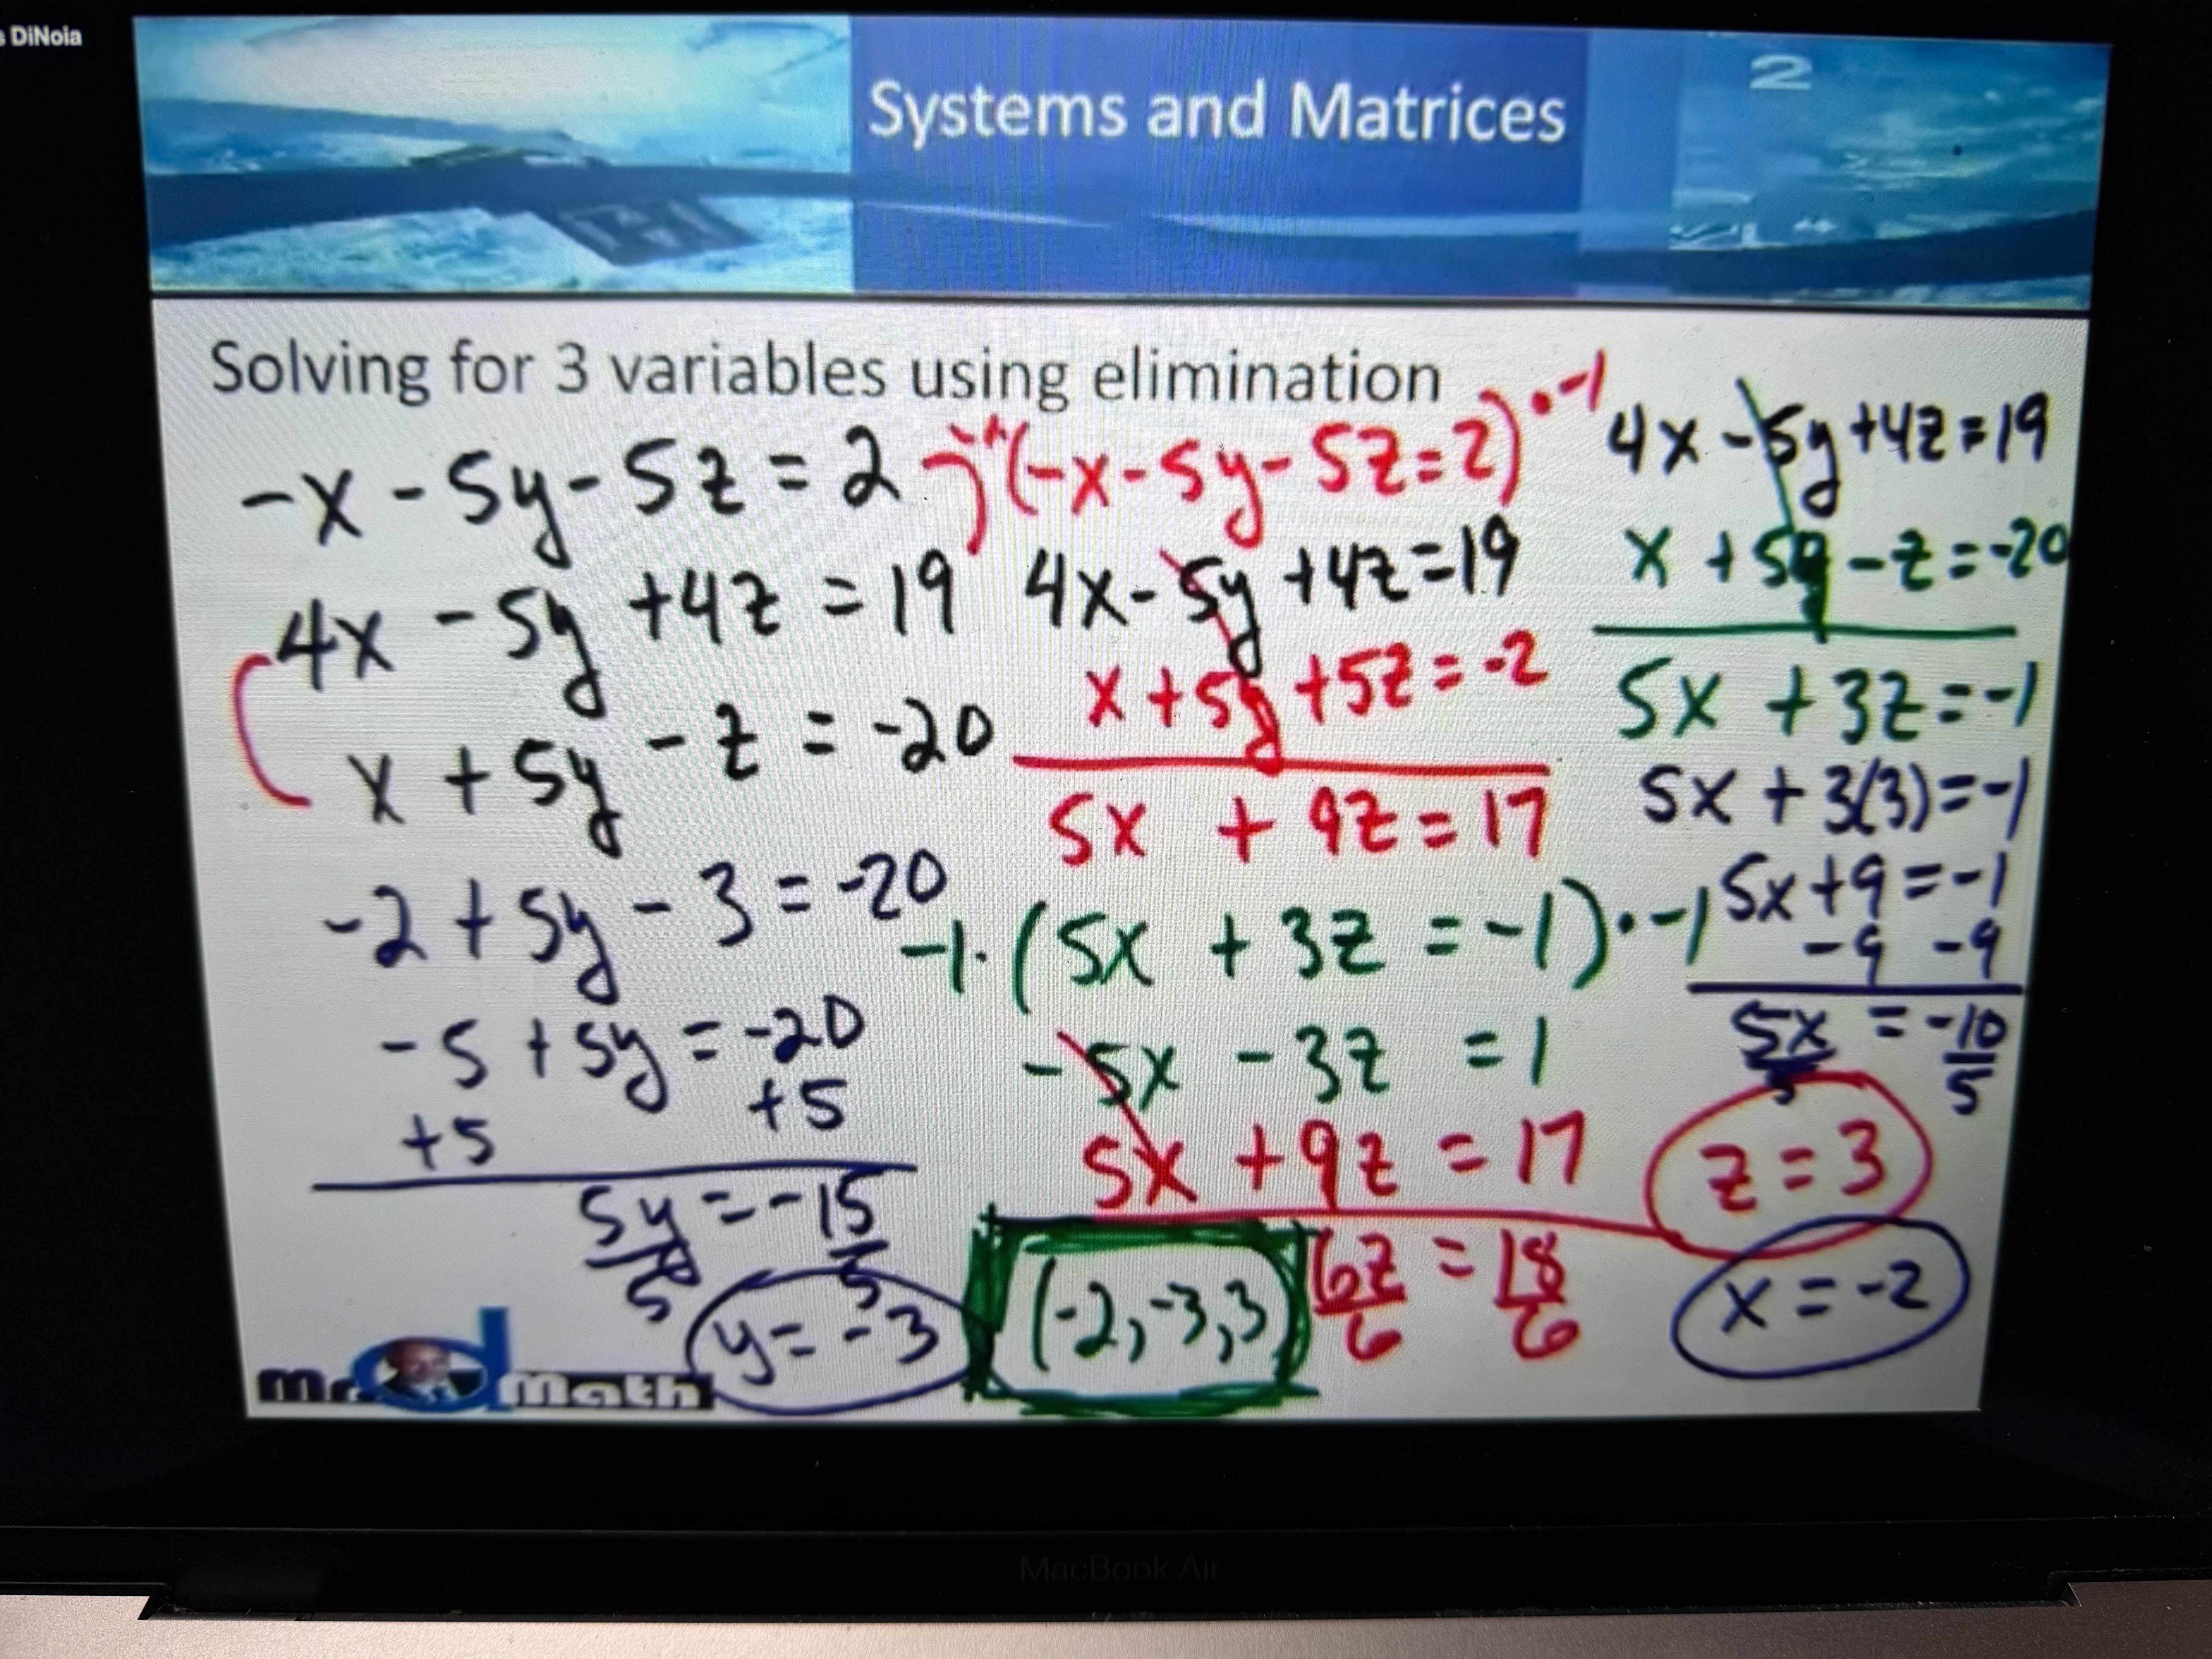 s DiNoia
Systems and Matrices
2
Solving for 3 variables using elimination
-x - 5y - 5z = 2
4x - 5y + 4z = 19
x + 5y - z = -20
-2 + 5y - 3 = -20
-5 + 5y = -20
+5 +5
5y = -15
5 5
y = -3
-1·(-x - 5y - 5z = 2)·-1
4x - 5y + 4z = 19
x + 5y + 5z = -2
5x + 9z = 17
-1·(5x + 3z = -1)·-1
-5x - 3z = 1
5x + 9z = 17
6z = 18
6 6
(-2, -3, 3)
4x - 5y + 4z = 19
x + 5y - z = -20
5x + 3z = -1
5x + 3(3) = -1
5x + 9 = -1
-9 -9
5x = -10
5 5
z = 3
x = -2
Mr d Math
MacBook Air